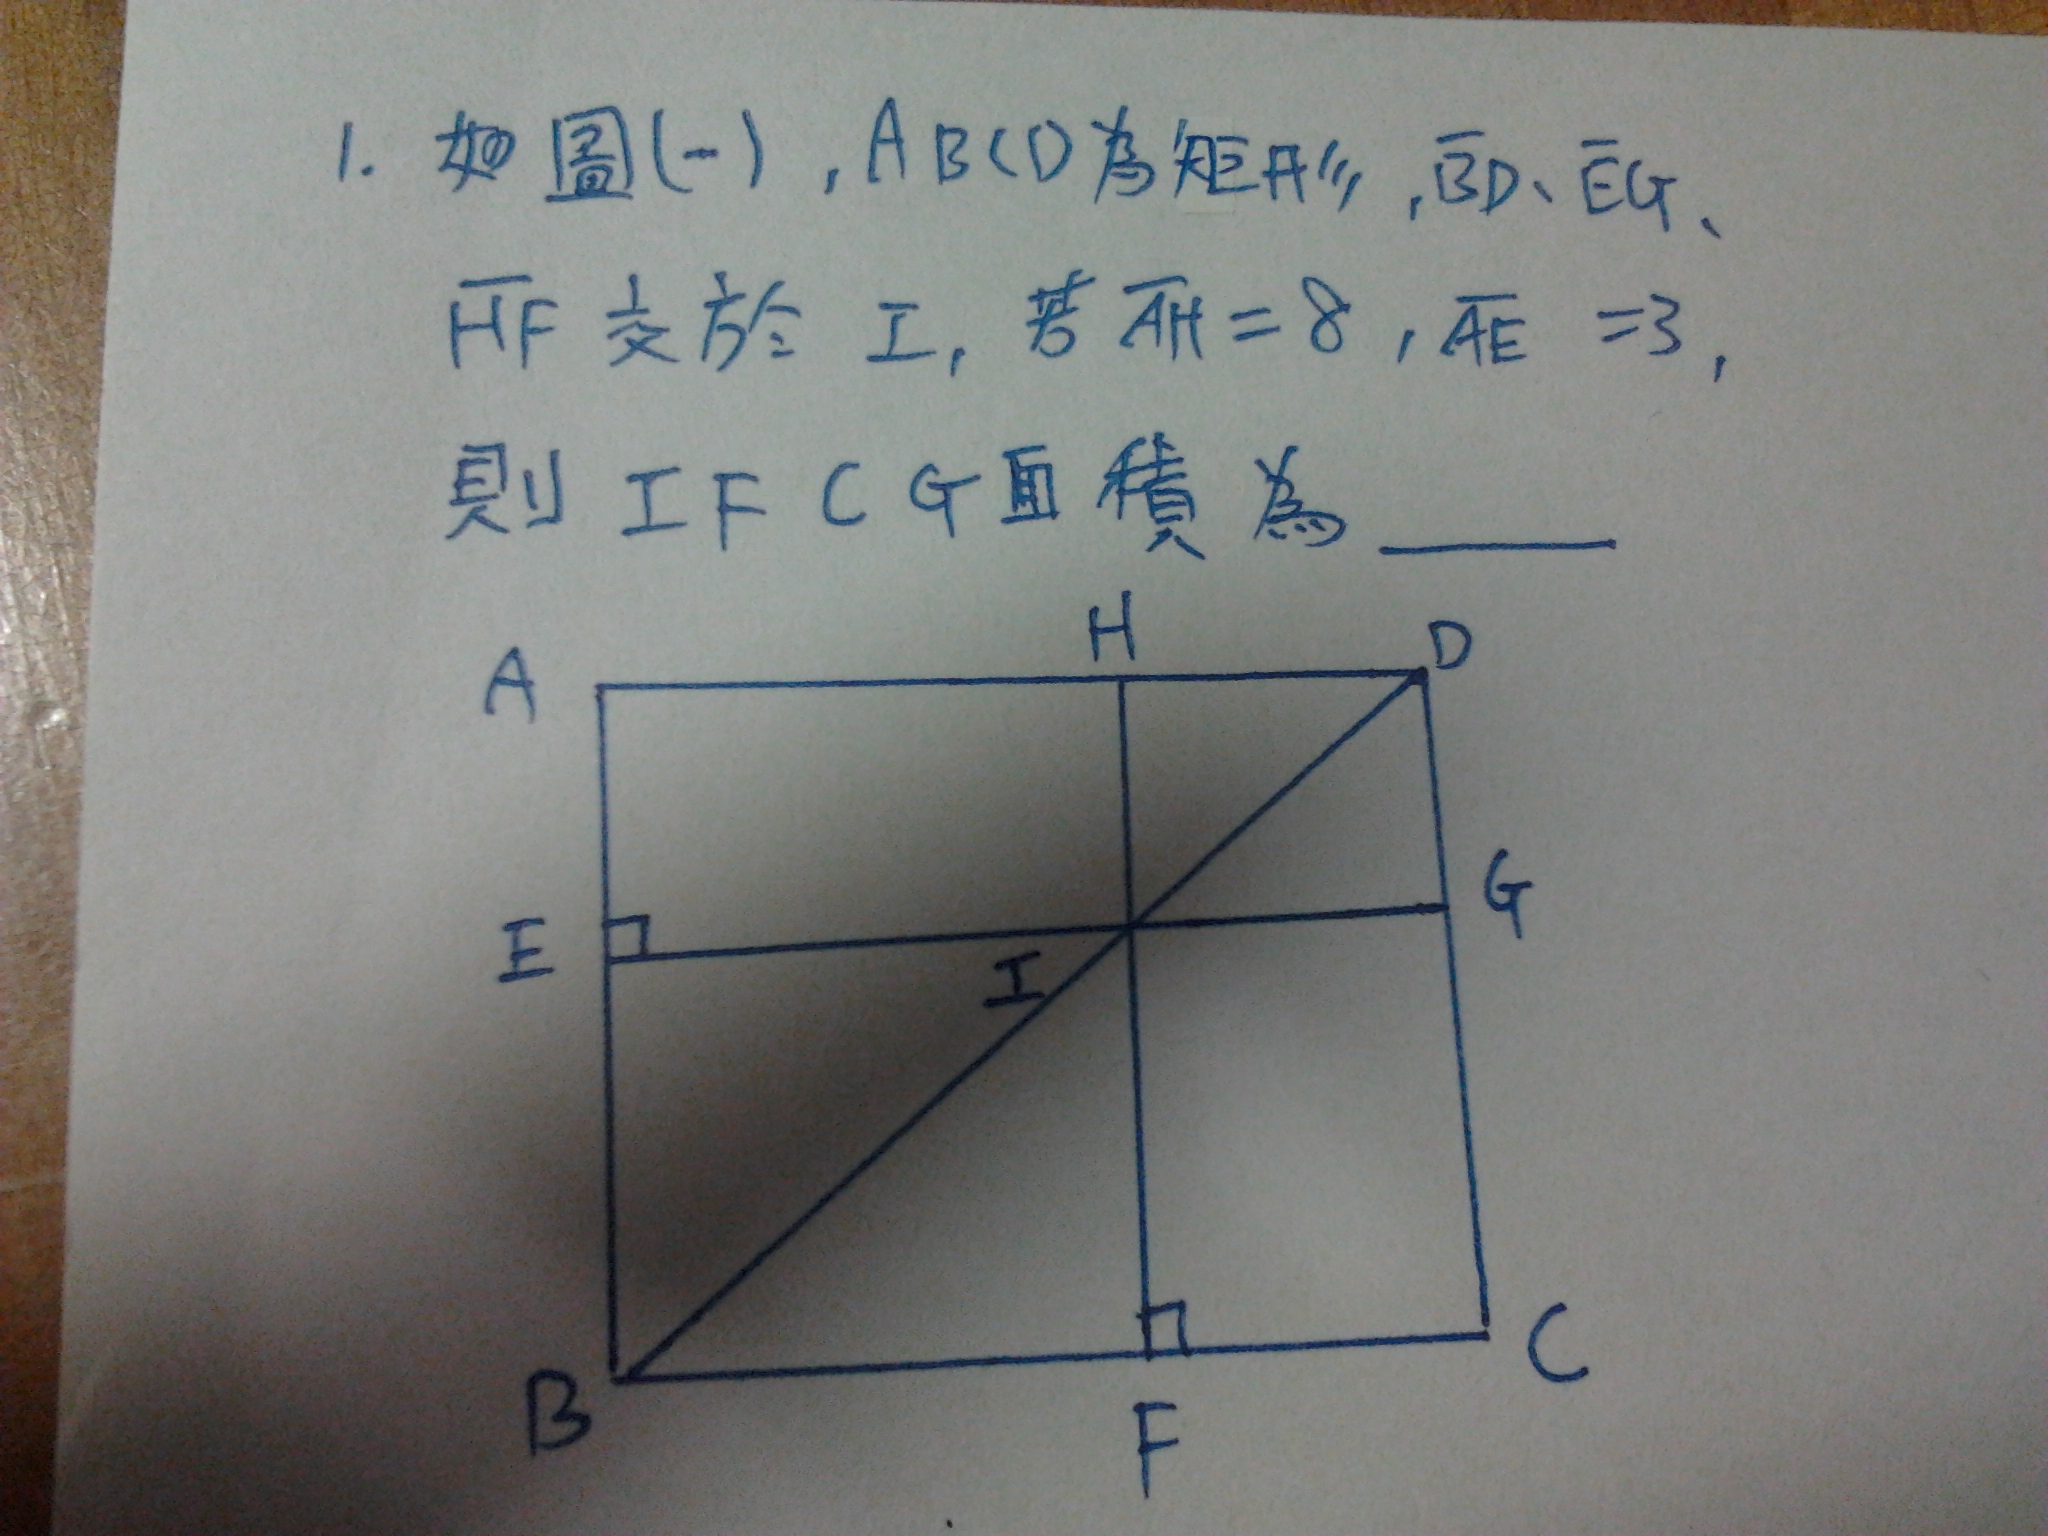 1. 如圖(一), ABCD為矩形, B̅D̅、E̅G̅、
H̅F̅ 交於 I, 若 A̅H̅ = 8, A̅E̅ = 3,
則 IFCG面積為 ____
A H D
E I G
B F C